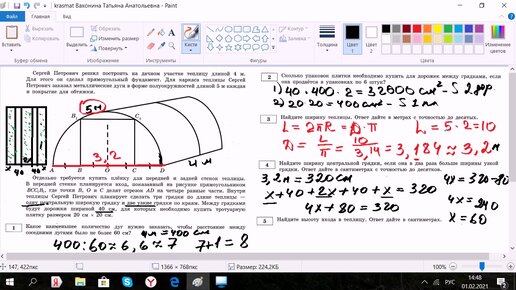 krasmat Вахонина Татьяна Анатольевна - Paint
Буфер обмена
Изображение
Инструменты
Кисти
Фигуры
Толщина
Цвет 1
Цвет 2
Цвета
Изменение цветов
Сергей Петрович решил построить на дачном участке теплицу длиной 4 м.
Для этого он сделал прямоугольный фундамент. Для каркаса теплицы Сергей
Петрович заказал металлические дуги в форме полуокружностей длиной 5 м каждая
и покрытие для обтяжки.
5 м
B
C
3,2
4 м
A
B
O
C
D
40
40
Отдельно требуется купить плёнку для передней и задней стенок теплицы.
В передней стенке планируется вход, показанный на рисунке прямоугольником
BCC₁B₁, где точки B, O и C делят отрезок AD на четыре равные части. Внутри
теплицы Сергей Петрович планирует сделать три грядки по длине теплицы —
одну центральную широкую и две узкие грядки по краям. Между грядками
будут дорожки шириной 40 см, для которых необходимо купить тротуарную
плитку размером 20 см × 20 см.
1
Какое наименьшее количество дуг нужно заказать, чтобы расстояние между
соседними дугами было не более 60 см?
4м = 400 см
400:60≈6,6≈7
7+1=8
2
Сколько упаковок плитки необходимо купить для дорожек между грядками, если
она продаётся в упаковках по 6 штук?
1) 40·400·2=32000 см² - S 2 дор
2) 20·20=400 см - S 1 пл
3
Найдите ширину теплицы. Ответ дайте в метрах с точностью до десятых.
L = 2πR = D·π
L = 5·2=10
D = L/π = 10/3,14 = 3,184≈3,2м
4
Найдите ширину центральной грядки, если она в два раза больше ширины узкой
грядки. Ответ дайте в сантиметрах с точностью до десятых.
3,2м = 320 см
x+40+2x+40+x=320
4x+80=320
4x=320-80
4x=240
x=60
5
Найдите высоту входа в теплицу. Ответ дайте в сантиметрах.
147, 422пкс
1366 × 768пкс
Размер: 224,2КБ
100%
РУС
14:48
01.02.2021